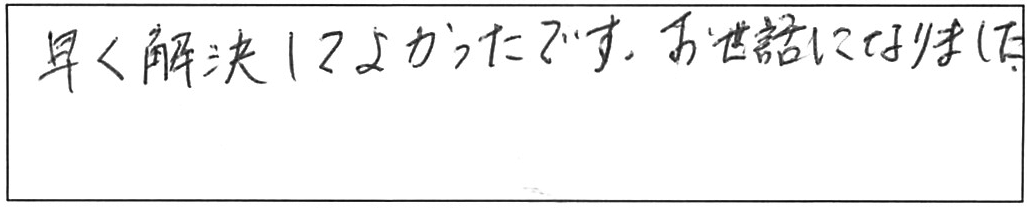 早く解決してよかったです。お世話になりました。